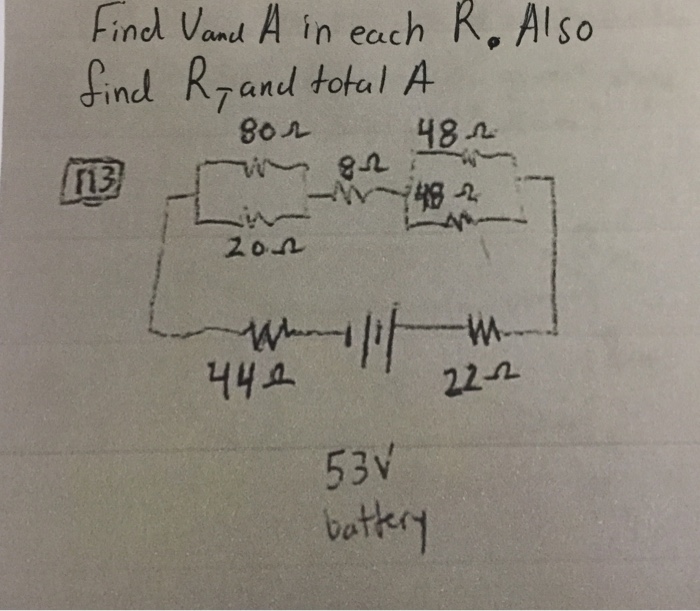 Find V and A in each R. Also
find R_T and total A
80Ω 48Ω
8Ω
113 48Ω
20Ω
44Ω 22Ω
53V
battery